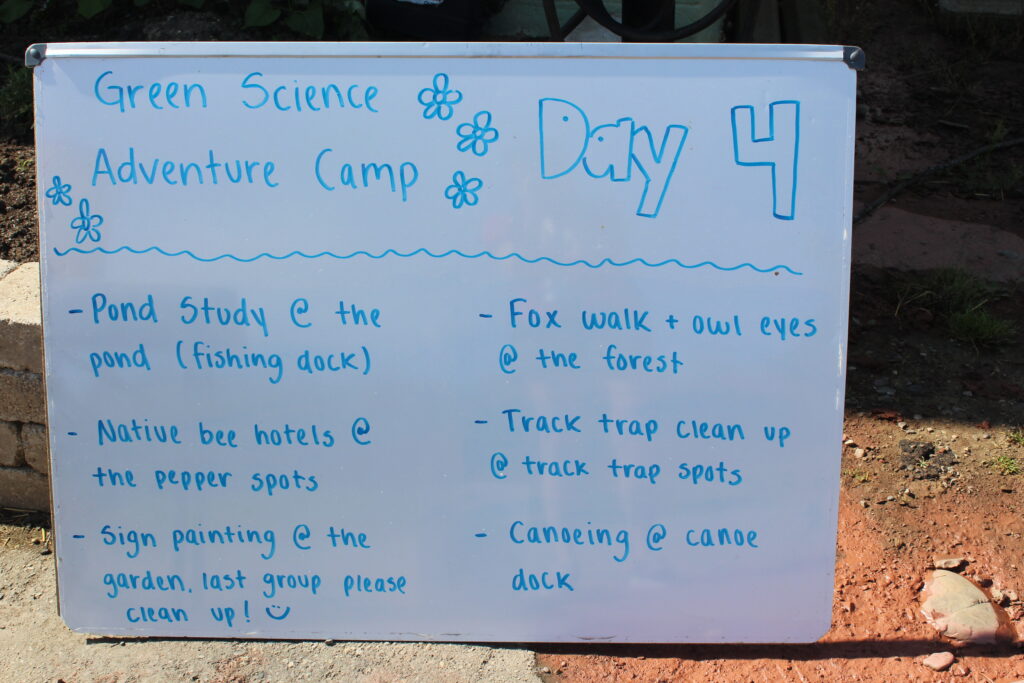 Green Science
Adventure Camp
Day 4
- Pond Study @ the
pond (fishing dock)
- Native bee hotels @
the pepper spots
- Sign painting @ the
garden, last group please
clean up!
- Fox walk + owl eyes
@ the forest
- Track trap clean up
@ track trap spots
- Canoeing @ canoe
dock